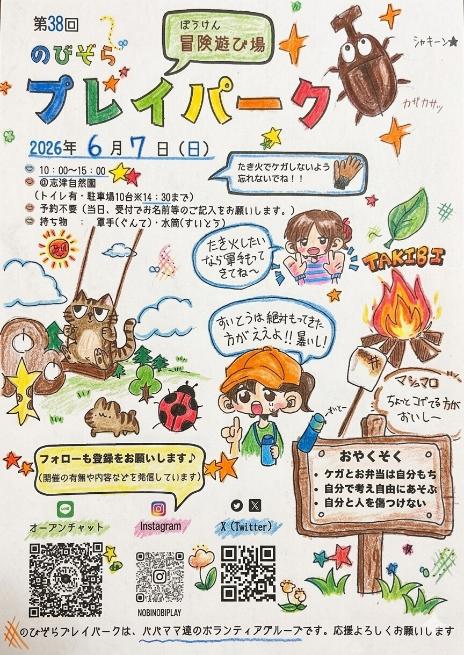 第38回
ぼうけん
冒険遊び場
のびぞら
プレイパーク
シャキーン★
カサカサッ
2026年 6月 7日(日)
10:00～15:00
@志津自然園
(トイレ有・駐車場10台※14:30まで)
予約不要(当日、受付でお名前等のご記入をお願いします。)
持ち物 : 軍手(ぐんて)・水筒(すいとう)
たき火でケガしないよう
忘れないでね!!
たき火したい
なら軍手もって
きてね～
TAKIBI
すいとうは絶対もってきた
方がええよ!!暑いし!
マシュマロ
ちょっとコゲてる方が
おいしー
おやくそく
・ケガとお弁当は自分もち
・自分で考え自由にあそぶ
・自分と人を傷つけない
フォローも登録をお願いします♪
(開催の有無や内容などを発信しています)
LINE
オープンチャット
Instagram
X(Twitter)
NOBINOBIPLAY
のびぞらプレイパークは、パパママ達のボランティアグループです。応援よろしくお願いします